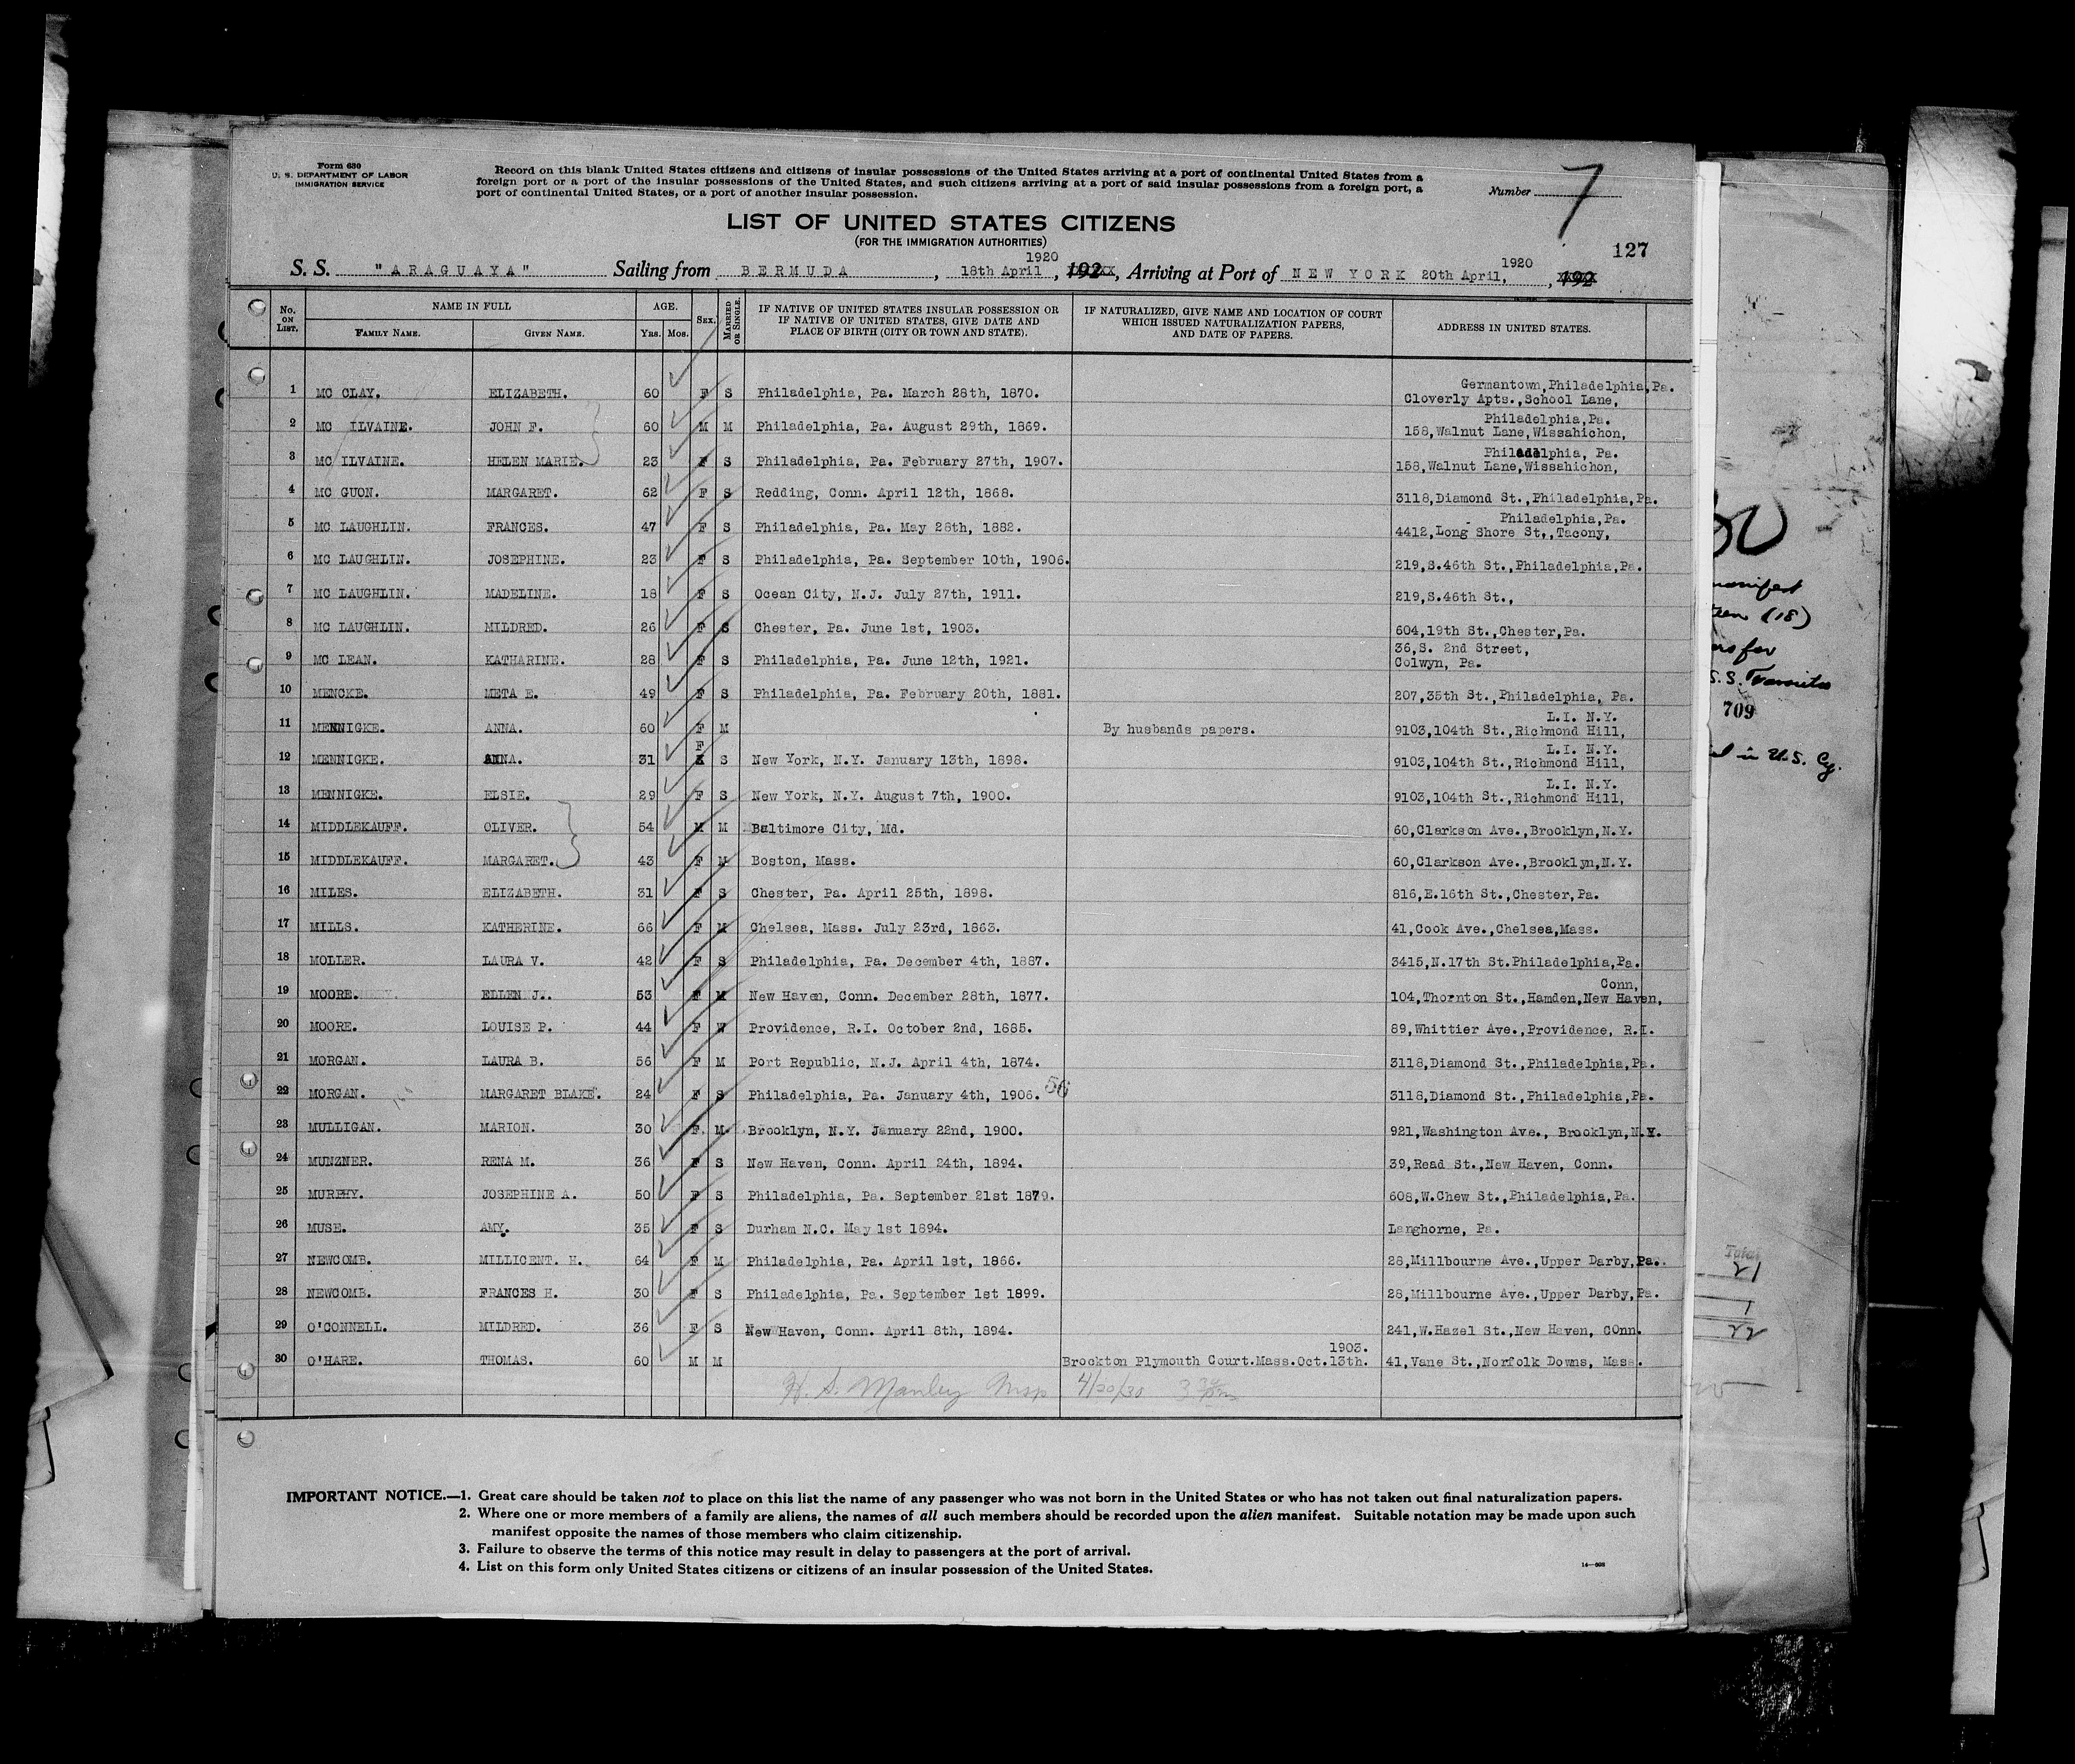 Form 630
U. S. DEPARTMENT OF LABOR
IMMIGRATION SERVICE
Record on this blank United States citizens and citizens of insular possessions of the United States arriving at a port of continental United States from a
foreign port or a port of the insular possessions of the United States, and such citizens arriving at a port of said insular possessions from a foreign port, a
port of continental United States, or a port of another insular possession.
Number 7
LIST OF UNITED STATES CITIZENS
(FOR THE IMMIGRATION AUTHORITIES)
127
S. S. "ARAGUAYA" Sailing from BERMUDA, 18th April 1920, 192, Arriving at Port of NEW YORK 20th April, 1920, 192
No. ON LIST. NAME IN FULL AGE. SEX. MARRIED OR SINGLE. IF NATIVE OF UNITED STATES INSULAR POSSESSION OR IF NATIVE OF UNITED STATES, GIVE DATE AND PLACE OF BIRTH (CITY OR TOWN AND STATE). IF NATURALIZED, GIVE NAME AND LOCATION OF COURT WHICH ISSUED NATURALIZATION PAPERS, AND DATE OF PAPERS. ADDRESS IN UNITED STATES.
FAMILY NAME. GIVEN NAME. Yrs. Mos.
1 MC CLAY. ELIZABETH. 60 F S Philadelphia, Pa. March 28th, 1870. Germantown, Philadelphia, Pa. Cloverly Apts., School Lane,
2 MC ILVAINE. JOHN F. 60 M M Philadelphia, Pa. August 29th, 1869. Philadelphia, Pa. 158, Walnut Lane, Wissahichon,
3 MC ILVAINE. HELEN MARIE. 23 F S Philadelphia, Pa. February 27th, 1907. Philadelphia, Pa. 158, Walnut Lane, Wissahichon,
4 MC GUON. MARGARET. 62 F S Redding, Conn. April 12th, 1868. 3118, Diamond St., Philadelphia, Pa.
5 MC LAUGHLIN. FRANCES. 47 F S Philadelphia, Pa. May 28th, 1882. Philadelphia, Pa. 4412, Long Shore St., Tacony,
6 MC LAUGHLIN. JOSEPHINE. 23 F S Philadelphia, Pa. September 10th, 1906. 219, S. 46th St., Philadelphia, Pa.
7 MC LAUGHLIN. MADELINE. 18 F S Ocean City, N.J. July 27th, 1911. 219, S. 46th St.,
8 MC LAUGHLIN. MILDRED. 26 F S Chester, Pa. June 1st, 1903. 604, 19th St., Chester, Pa.
9 MC LEAN. KATHARINE. 28 F S Philadelphia, Pa. June 12th, 1921. 36, S. 2nd Street, Colwyn, Pa.
10 MENCKE. META E. 49 F S Philadelphia, Pa. February 20th, 1881. 207, 35th St., Philadelphia, Pa.
11 MENNIGKE. ANNA. 60 F M By husbands papers. L.I. N.Y. 9103, 104th St., Richmond Hill,
12 MENNIGKE. ANNA. 31 F S New York, N.Y. January 13th, 1898. L.I. N.Y. 9103, 104th St., Richmond Hill,
13 MENNIGKE. ELSIE. 29 F S New York, N.Y. August 7th, 1900. L.I. N.Y. 9103, 104th St., Richmond Hill,
14 MIDDLEKAUFF. OLIVER. 54 M M Baltimore City, Md. 60, Clarkson Ave., Brooklyn, N.Y.
15 MIDDLEKAUFF. MARGARET. 43 F M Boston, Mass. 60, Clarkson Ave., Brooklyn, N.Y.
16 MILES. ELIZABETH. 31 F S Chester, Pa. April 25th, 1898. 816, E. 16th St., Chester, Pa.
17 MILLS. KATHERINE. 66 F M Chelsea, Mass. July 23rd, 1863. 41, Cook Ave., Chelsea, Mass.
18 MOLLER. LAURA V. 42 F S Philadelphia, Pa. December 4th, 1887. 3415, N. 17th St. Philadelphia, Pa.
19 MOORE. ELLEN J. 53 F M New Haven, Conn. December 28th, 1877. Conn, 104, Thornton St., Hamden, New Haven,
20 MOORE. LOUISE P. 44 F W Providence, R.I. October 2nd, 1885. 89, Whittier Ave., Providence, R.I.
21 MORGAN. LAURA B. 56 F M Port Republic, N.J. April 4th, 1874. 3118, Diamond St., Philadelphia, Pa.
22 MORGAN. MARGARET BLAKE. 24 F S Philadelphia, Pa. January 4th, 1906. 56 3118, Diamond St., Philadelphia, Pa.
23 MULLIGAN. MARION. 30 F. M. Brooklyn, N.Y. January 22nd, 1900. 921, Washington Ave., Brooklyn, N.Y.
24 MUNZNER. RENA M. 36 F S New Haven, Conn. April 24th, 1894. 39, Read St., New Haven, Conn.
25 MURPHY. JOSEPHINE A. 50 F S Philadelphia, Pa. September 21st 1879. 608, W. Chew St., Philadelphia, Pa.
26 MUSE. AMY. 35 F S Durham N.C. May 1st 1894. Langhorne, Pa.
27 NEWCOMB. MILLICENT. H. 64 F M Philadelphia, Pa. April 1st, 1866. 28, Millbourne Ave., Upper Darby, Pa.
28 NEWCOMB. FRANCES H. 30 F S Philadelphia, Pa. September 1st 1899. 28, Millbourne Ave., Upper Darby, Pa.
29 O'CONNELL. MILDRED. 36 F S New Haven, Conn. April 8th, 1894. 241, W. Hazel St., New Haven, COnn.
30 O'HARE. THOMAS. 60 M M Brockton Plymouth Court. Mass. Oct. 13th. 1903. 41, Vane St., Norfolk Downs, Mass.
H. S. Manley Insp 4/20/30
IMPORTANT NOTICE.—1. Great care should be taken not to place on this list the name of any passenger who was not born in the United States or who has not taken out final naturalization papers.
2. Where one or more members of a family are aliens, the names of all such members should be recorded upon the alien manifest. Suitable notation may be made upon such
manifest opposite the names of those members who claim citizenship.
3. Failure to observe the terms of this notice may result in delay to passengers at the port of arrival.
4. List on this form only United States citizens or citizens of an insular possession of the United States.
manifest
(18)
for
S.S.
709
in U.S. Cy.
Total
21
1
22